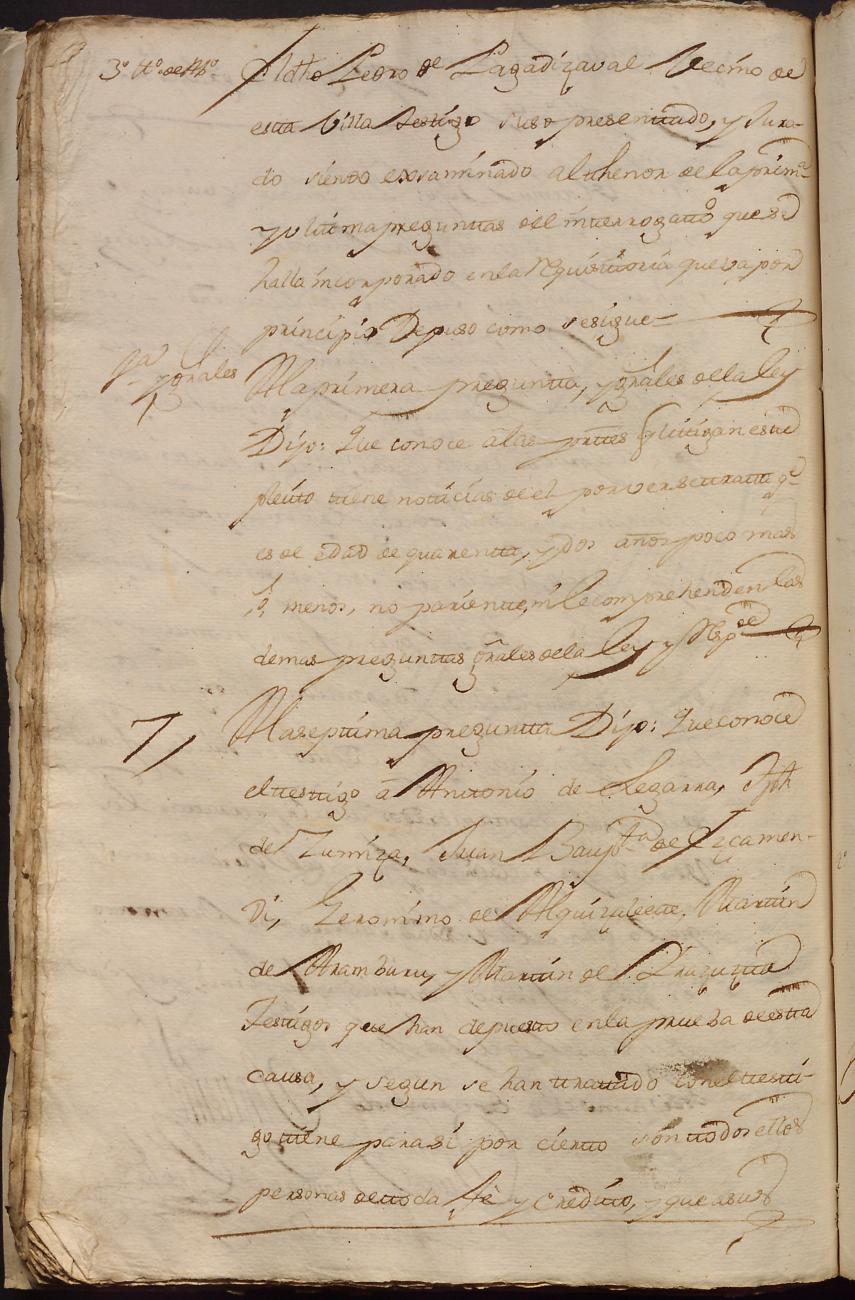 3º tº. de Mº
El dho Pedro de Lagadizaval Vecino de
esta Villa testigo suso presentado, y Jura-
do siendo exsaminado al thenor de la prim.ª
y ultima preguntas del interrogattº que se
halla incorporado en la Rquisitoria que va por
principio Depuso como se sigue
1ª y grales
A la primera pregunta, y grãles de la ley
Dijo: Que conoce a las partes q litigan este
pleito tiene noticias de el por verse tratta q.e
es de edad de quarentta, y dos años poco mas
ò, menos, no pariente, ni le comprehenden las
demas preguntas grãles de la ley y Rsp.de
7,
A la septima pregunta Dijo: Que conoce
el testtigo a Anttonio de Legarra, Jph
de Zuniza, Juan Baup.ta de Izcamen-
di, Geronimo de Alquizalecte, Martin
de Aramburu, y Martin de
Testigos que han depuesto en la prueba de esta
causa, y segun se han tratado con el testi-
go tiene para si por cierto són ttodos ellos
personas de toda fè y credito, y que a sus